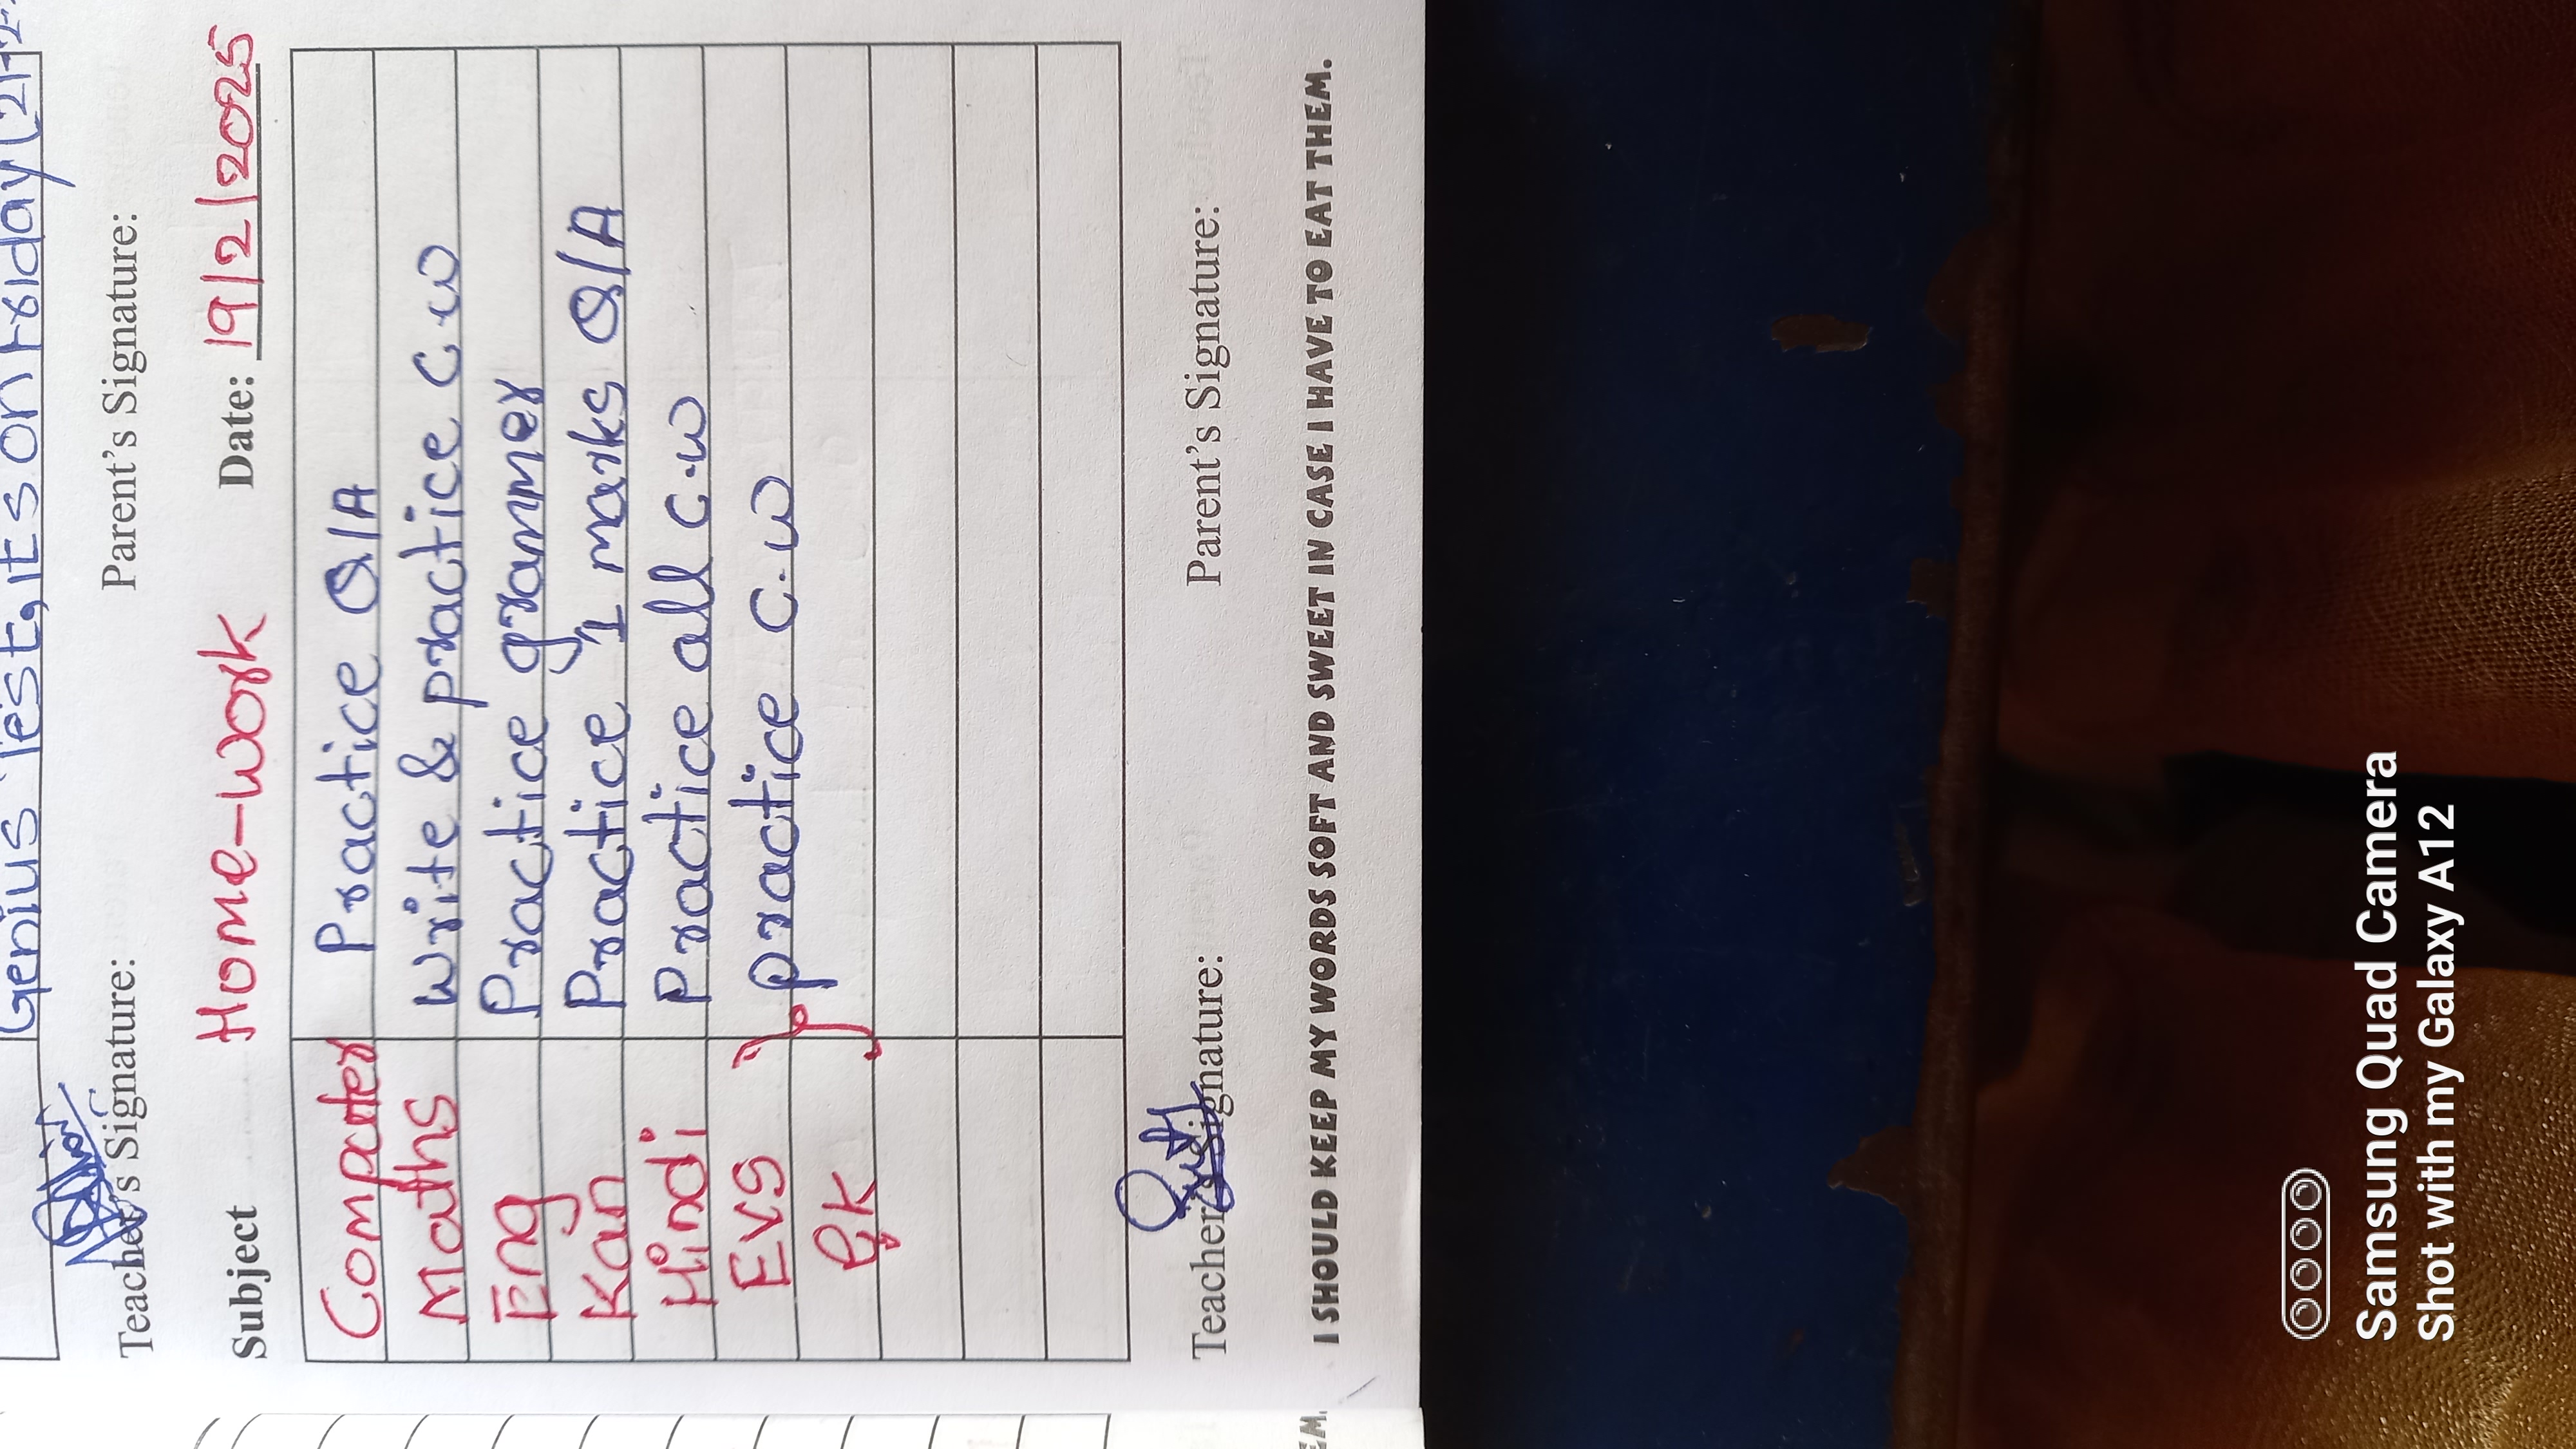 Genius Test, its on Friday (21-2-
Teacher's Signature: Parent's Signature:
Subject Home-work Date: 19/2/2025
Computer Practice Q/A
Maths write & practice C.w
Eng Practice grammer
Kan Practice 1 marks Q/A
Hindi Practice all C.w
Evs practice C.w
G.K
Teacher's Signature: Parent's Signature:
I SHOULD KEEP MY WORDS SOFT AND SWEET IN CASE I HAVE TO EAT THEM.
EM.
Samsung Quad Camera
Shot with my Galaxy A12